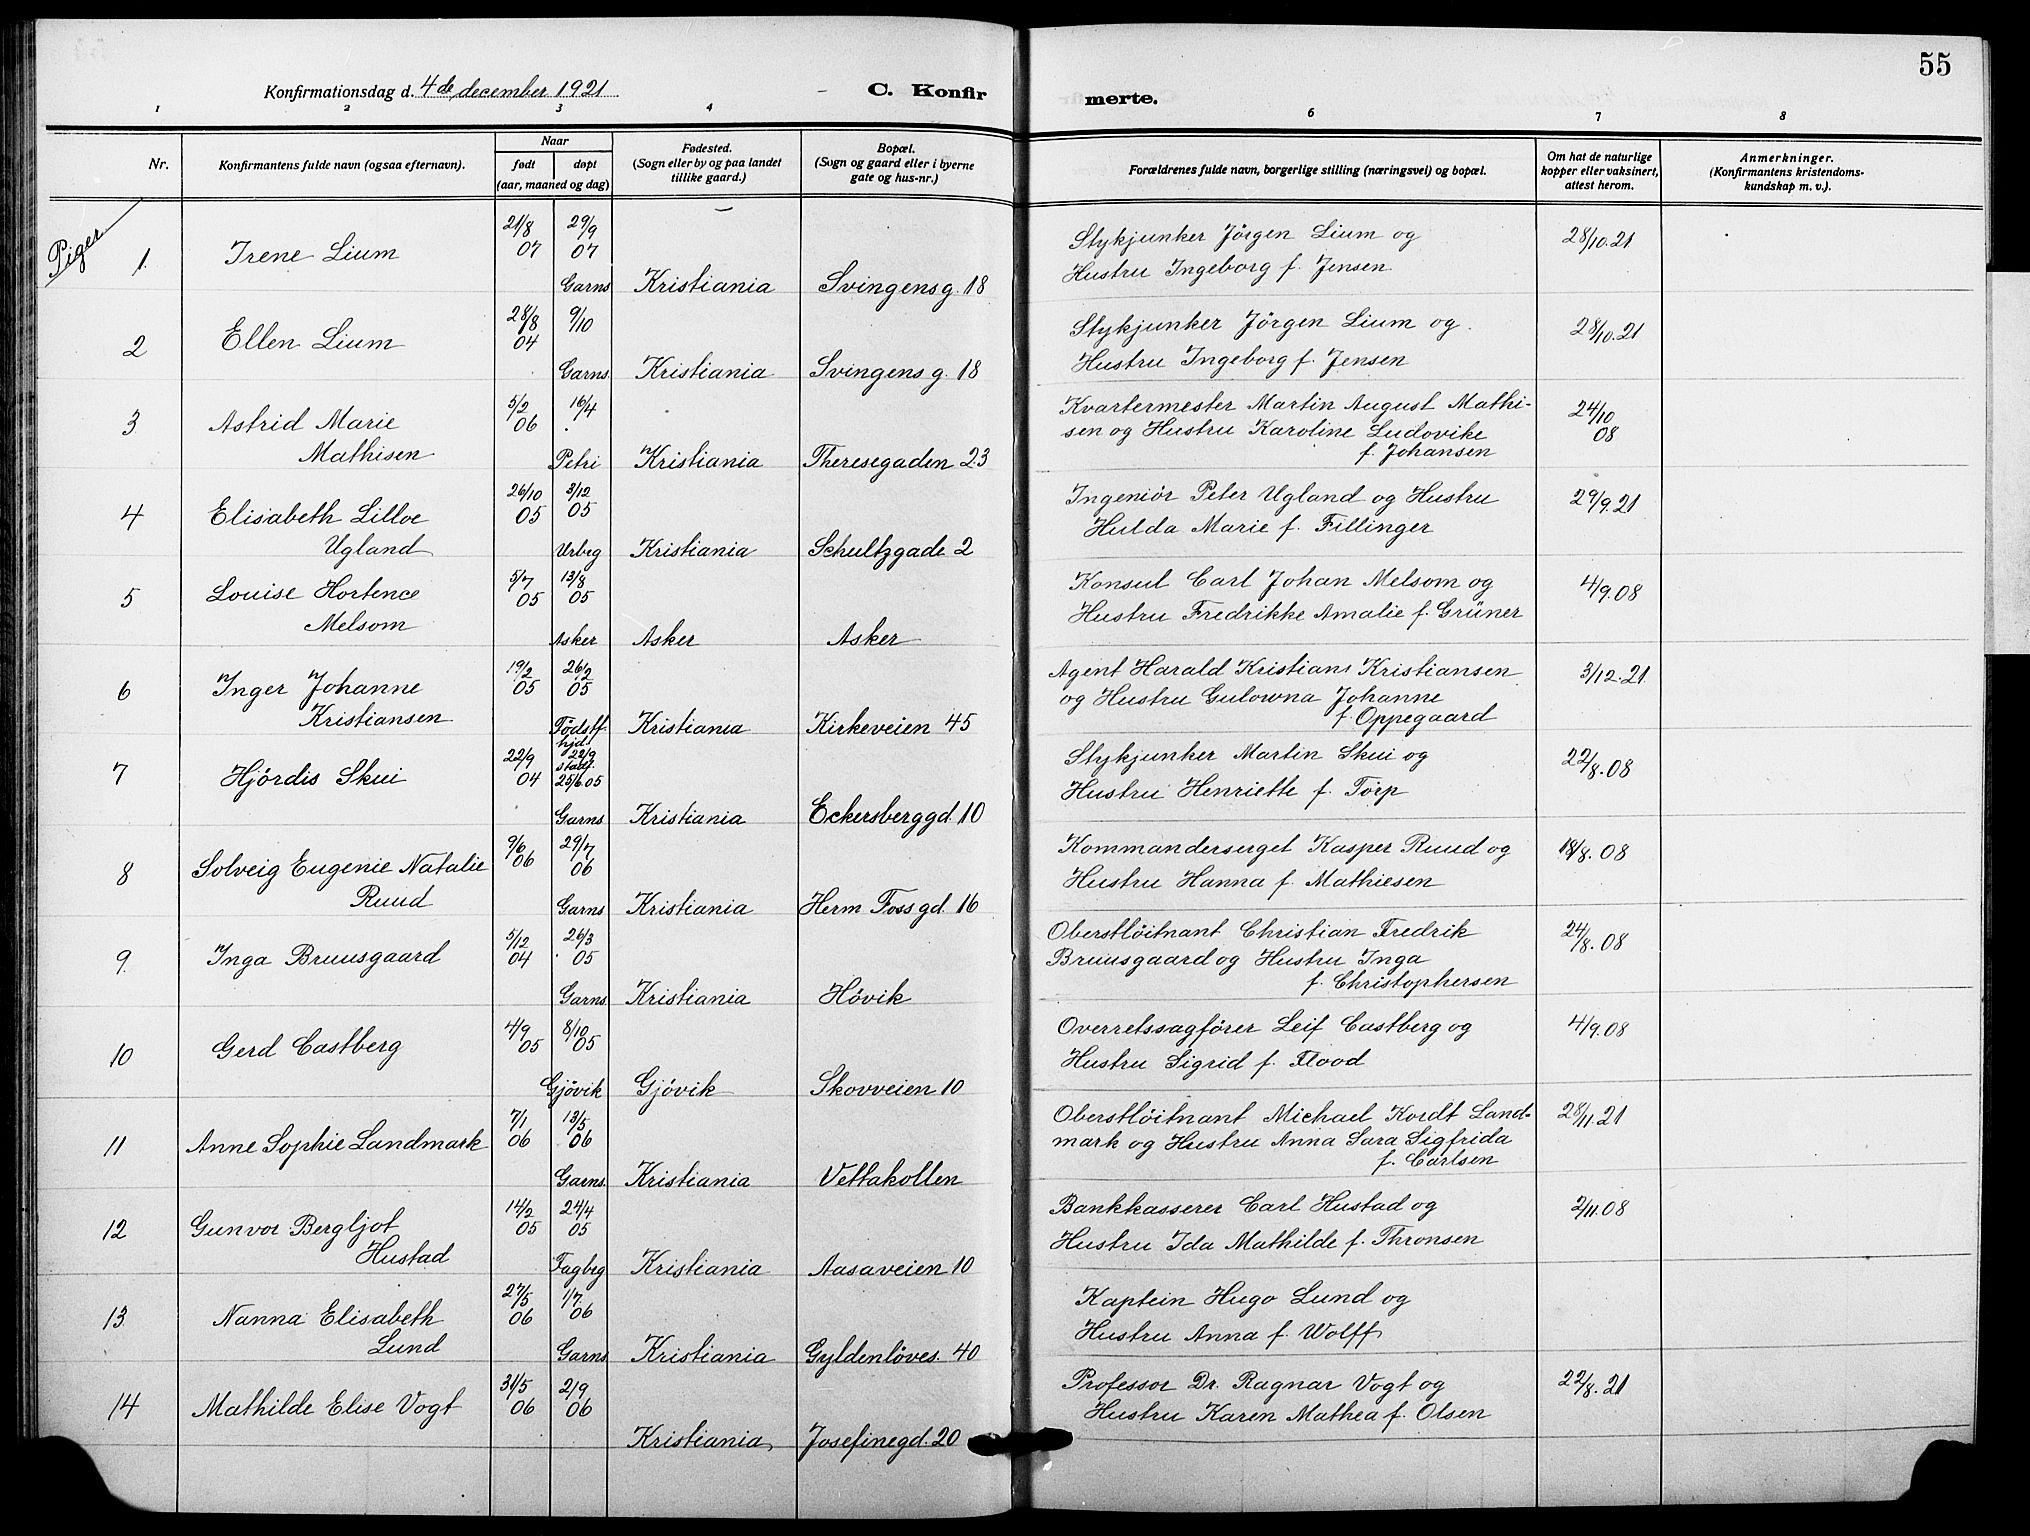 55
Konfirmationsdag d. 4de december 1921
C. Konfir
merte.
1 2 3 4 6 7 8
Nr.
Konfirmantens fulde navn (ogsaa efternavn).
Naar
født døpt
(aar, maaned og dag)
Fødested.
(Sogn eller by og paa landet
tillike gaard.)
Bopæl.
(Sogn og gaard eller i byerne
gate og hus-nr.)
Forældrenes fulde navn, borgerlige stilling (næringsvei) og bopæl.
Om hat de naturlige
kopper eller vaksinert,
attest herom.
Anmerkninger.
(Konfirmantens kristendoms-
kundskap m. v.).
Piger
1. Irene Lium 21/8 07 29/9 07 Garns Kristiania Svingensg. 18
Stykjunker Jörgen Lium og
Hustru Ingeborg f. Jensen
28/10.21
2 Ellen Lium 28/8 04 9/10 Garns. Kristiania Svingens g. 18
Stykjunker Jörgen Lium og.
Hustru Ingeborg f. Jensen
28/10.21
3 Astrid Marie
Mathisen 5/2 06 16/4 Petri Kristiania Theresegaden 23
Kvartermester Martin August Mathi-
sen og Hustru Karoline Ludovike
f. Johansen
24/10 08
4 Elisabeth Lilloe
Ugland 26/10 05 3/12 05 Urbeg Kristiania Schultzgade 2
Ingeniör Peter Ugland og Hustru
Hulda Marie f. Fillinger
29/9.21
5 Louise Hortence
Melsom 5/7 05 13/8 05 Asker Asker Asker
Konsul Carl Johan Melsom og
Hustru Fredrikke Amalie f. Grüner
4/9.08
6 Inger Johanne
Kristiansen 19/2 05 26/2 05 Födstf. Kristiania Kirkeveien 45
Agent Harald Kristians Kristiansen
og Hustru Gulowna Johanne
f. Oppegaard
3/12.21
7 Hjördis Skui 22/9 04 hjd. 22/9 stadf. 25/6.05 Garns Kristiania Eckersberggd. 10
Stykjunker Martin Skui og
Hustru Henriette f. Törp
22/8.08
8 Solveig Eugenie Natalie
Ruud 9/6 06 29/7 06 Garns Kristiania Herm Foss gd. 16
Kommandersergt Kasper Ruud og
Hustru Hanna f. Mathiesen
18/8.08
9. Inga Bruusgaard 5/12 04 26/3 05 Garns. Kristiania Hövik
Oberstlöitnant Christian Fredrik
Bruusgaard og Hustru Inga
f. Christophersen
24/8.08
10 Gerd Castberg 4/9 05 8/10 05 Gjövik Gjövik Skovveien 10
Overretssagförer Leif Castberg og
Hustru Sigrid f. Flood
4/9.08
11 Anne Sophie Landmark 7/1 06 13/5 06 Garns. Kristiania Vettakollen
Oberstlöitnant Michael Kordt Land-
mark og Hustru Anna Sara Sigfrida
f. Carlsen
28/11.21
12 Gunvor Bergljot
Hustad 14/2 05 24/4 05 Fagbeg Kristiania Aasaveien 10
Bankkasserer Carl Hustad og
Hustru Ida Mathilde f. Thronsen
2/11.08
13. Nanna Elisabeth
Lund 27/5 06 1/7 06 Garns Kristiania Gyldenlöves. 40
Kaptein Hugo Lund og
Hustru Anna f. Wolff
14 Mathilde Elise Vogt 31/5 06 2/9 06 Kristiania, Josefinegd. 20
Professor Dr. Ragnar Vogt og
Hustru Karen Mathea f. Olsen
22/8.21